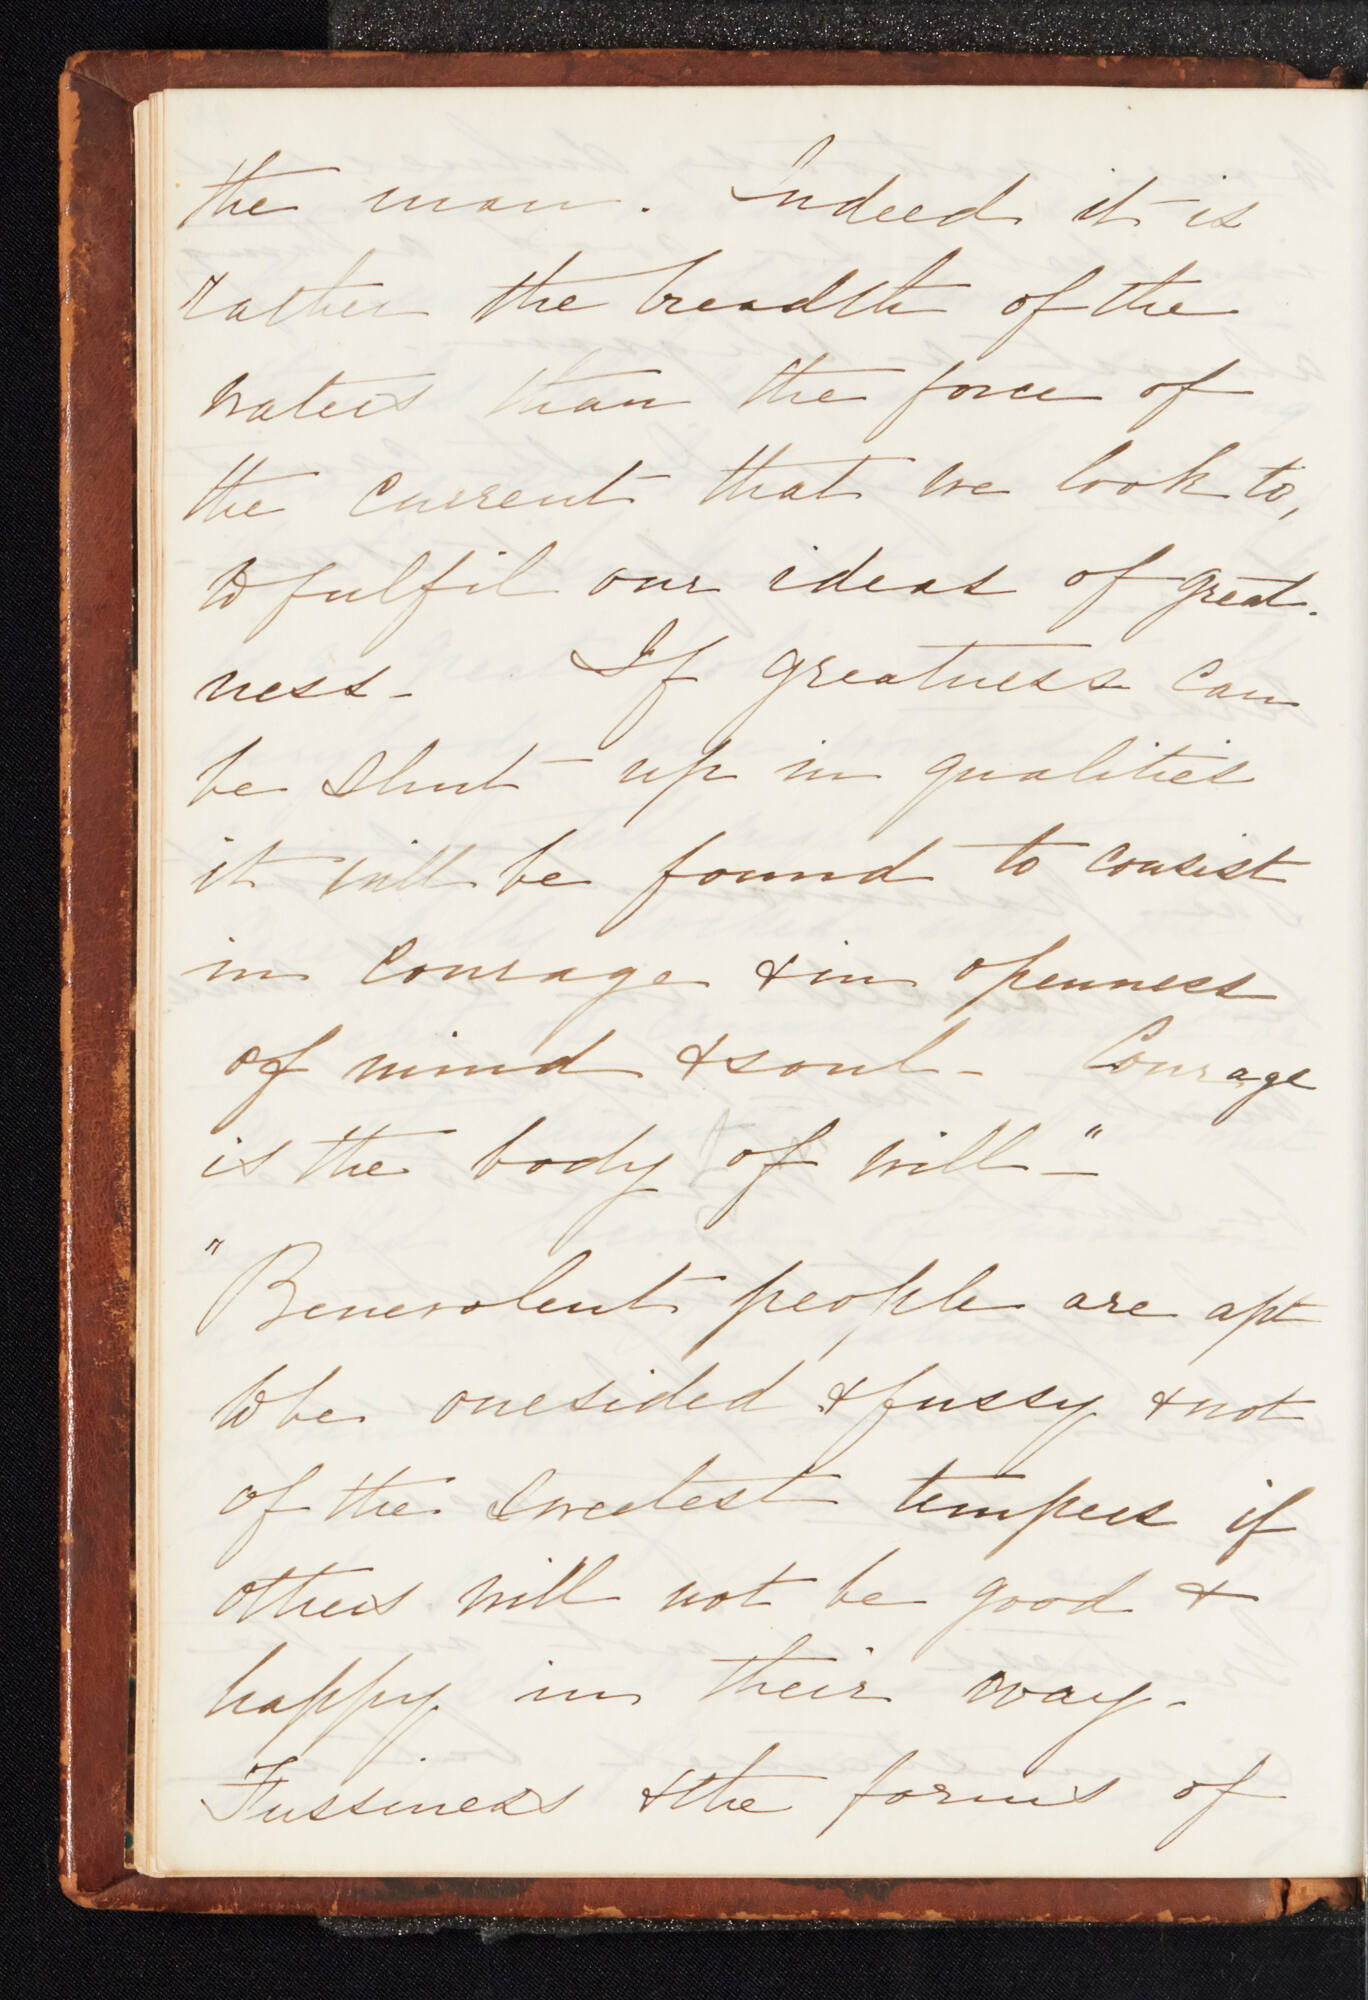 the man. Indeed it is
rather the breadth of the
waters than the force of
the current that we look to,
to fulfil our ideas of great-
ness - If greatness can
be shut - up in qualities
it will be found to consist
in courage & in openness
of mind & soul - Courage
is the body of will - "
"Benevolent people are apt
to be onesided & fussy & not
of the sweetest tempers if
others will not be good &
happy in their way -
Fussiness & the forms of